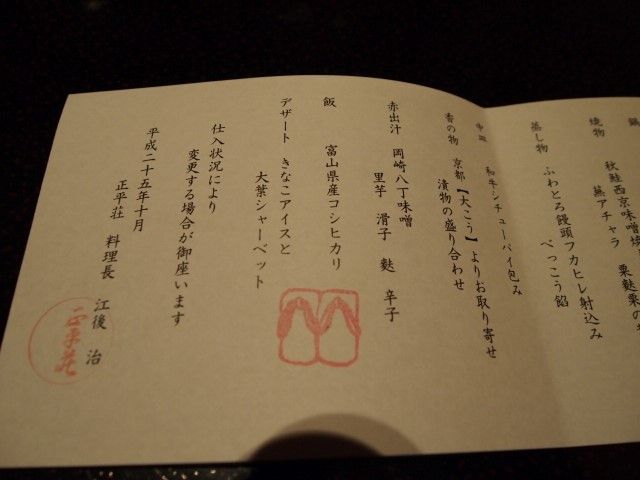 鍋
焼物 秋鮭西京味噌焼
蕪アチャラ 粟麩栗の
蒸し物 ふわとろ饅頭フカヒレ射込み
べっこう餡
和牛シチューパイ包み
香の物 京都【大こう】よりお取り寄せ
漬物の盛り合わせ
赤出汁 岡崎八丁味噌
里芋 滑子 麩 辛子
飯 富山県産コシヒカリ
デザート きなこアイスと
大葉シャーベット
仕入状況により
変更する場合が御座います
平成二十五年十月
正平荘 料理長 江後 治
正平荘